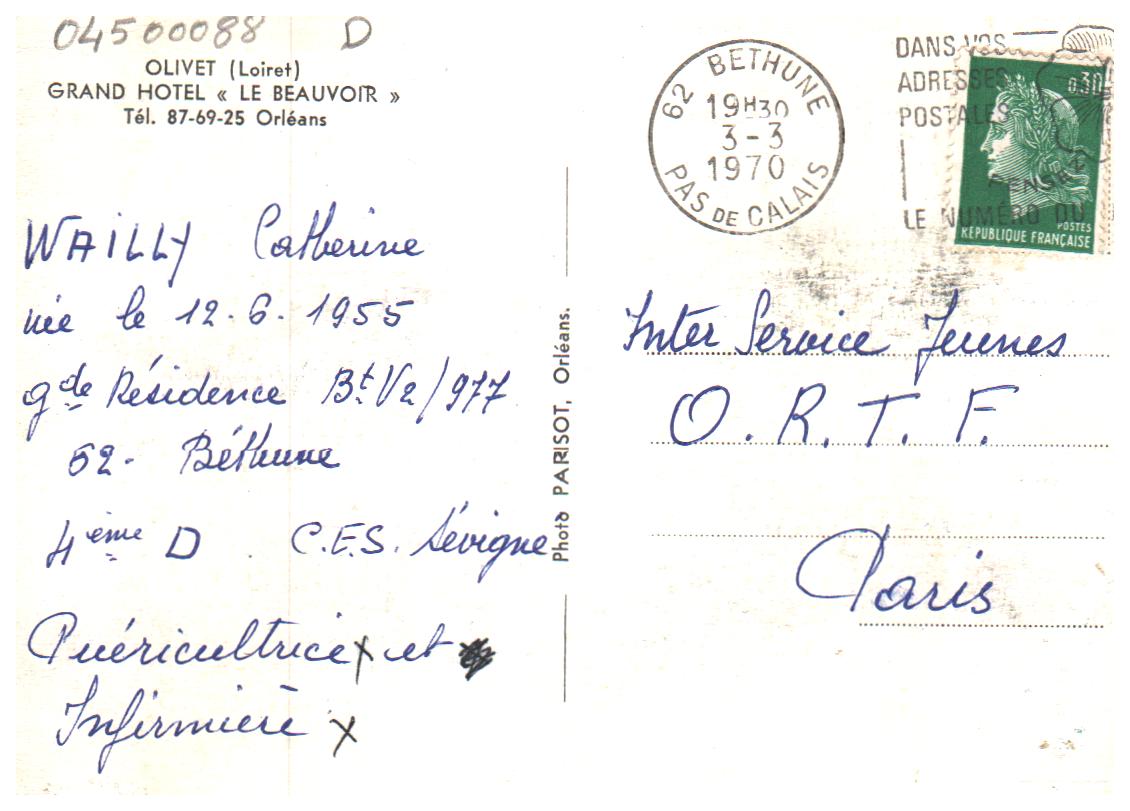 04500088 D
OLIVET (Loiret)
GRAND HOTEL « LE BEAUVOIR »
Tél. 87-69-25 Orléans
WAILLY Catherine
née le 12.6.1955
gde Résidence Bt V2/977
62. Béthune
4ème D. C.E.S. Sévigne
Puéricultrice x et
Infirmière x
Photo PARISOT, Orléans.
62 BETHUNE
19H30
3-3
1970
PAS DE CALAIS
DANS VOS
ADRESSES
POSTALES
PENSEZ
LE NUMÉRO DU
0,30
POSTES
REPUBLIQUE FRANÇAISE
Inter Service Jeunes
O.R.T.F.
Paris